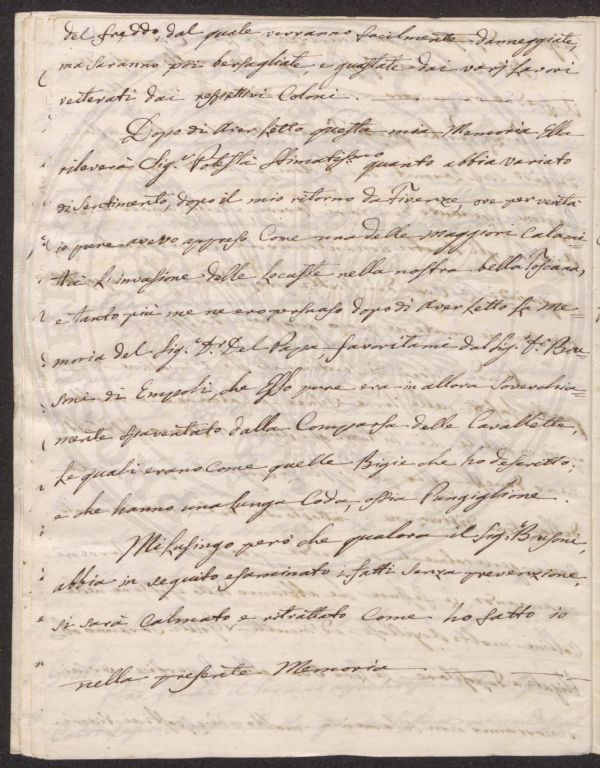 del freddo, dal quale verranno facilmente danneggiate,
ma saranno poi bersagliate, e guastate dai varj lavori
reiterati dai respettivi Coloni.
Dopo di aver Letto questa mia Memoria Ella
rileverà Sig.r Potestà Stimatiss.mo quanto abbia variato
di sentimento, dopo il mio ritorno da Firenze, ove per verità
io pure avevo appreso Come una delle maggiori Calami
tà L'invasione delle Locuste nella nostra bella Toscana,
e tanto più me ne ero persuaso dopo di aver Letto La Me=
moria del Sig.r D.r Del Papa, favoritami dal Sig.r F. Bu=
soni di Empoli, che Esso pure era in allora Soverchia=
mente spaventato dalla Comparsa delle Cavallette,
Le quali erano Come quelle Bigie che ho descritto;
e che hanno una Lunga Coda, ossia Pungiglione.
Mi Lusingo però che qualora il Sig.r Busoni,
abbia in seguito esaminato i fatti senza prevenzione,
si sarà Calmato, e ritrattato Come ho fatto io
nella presente Memoria